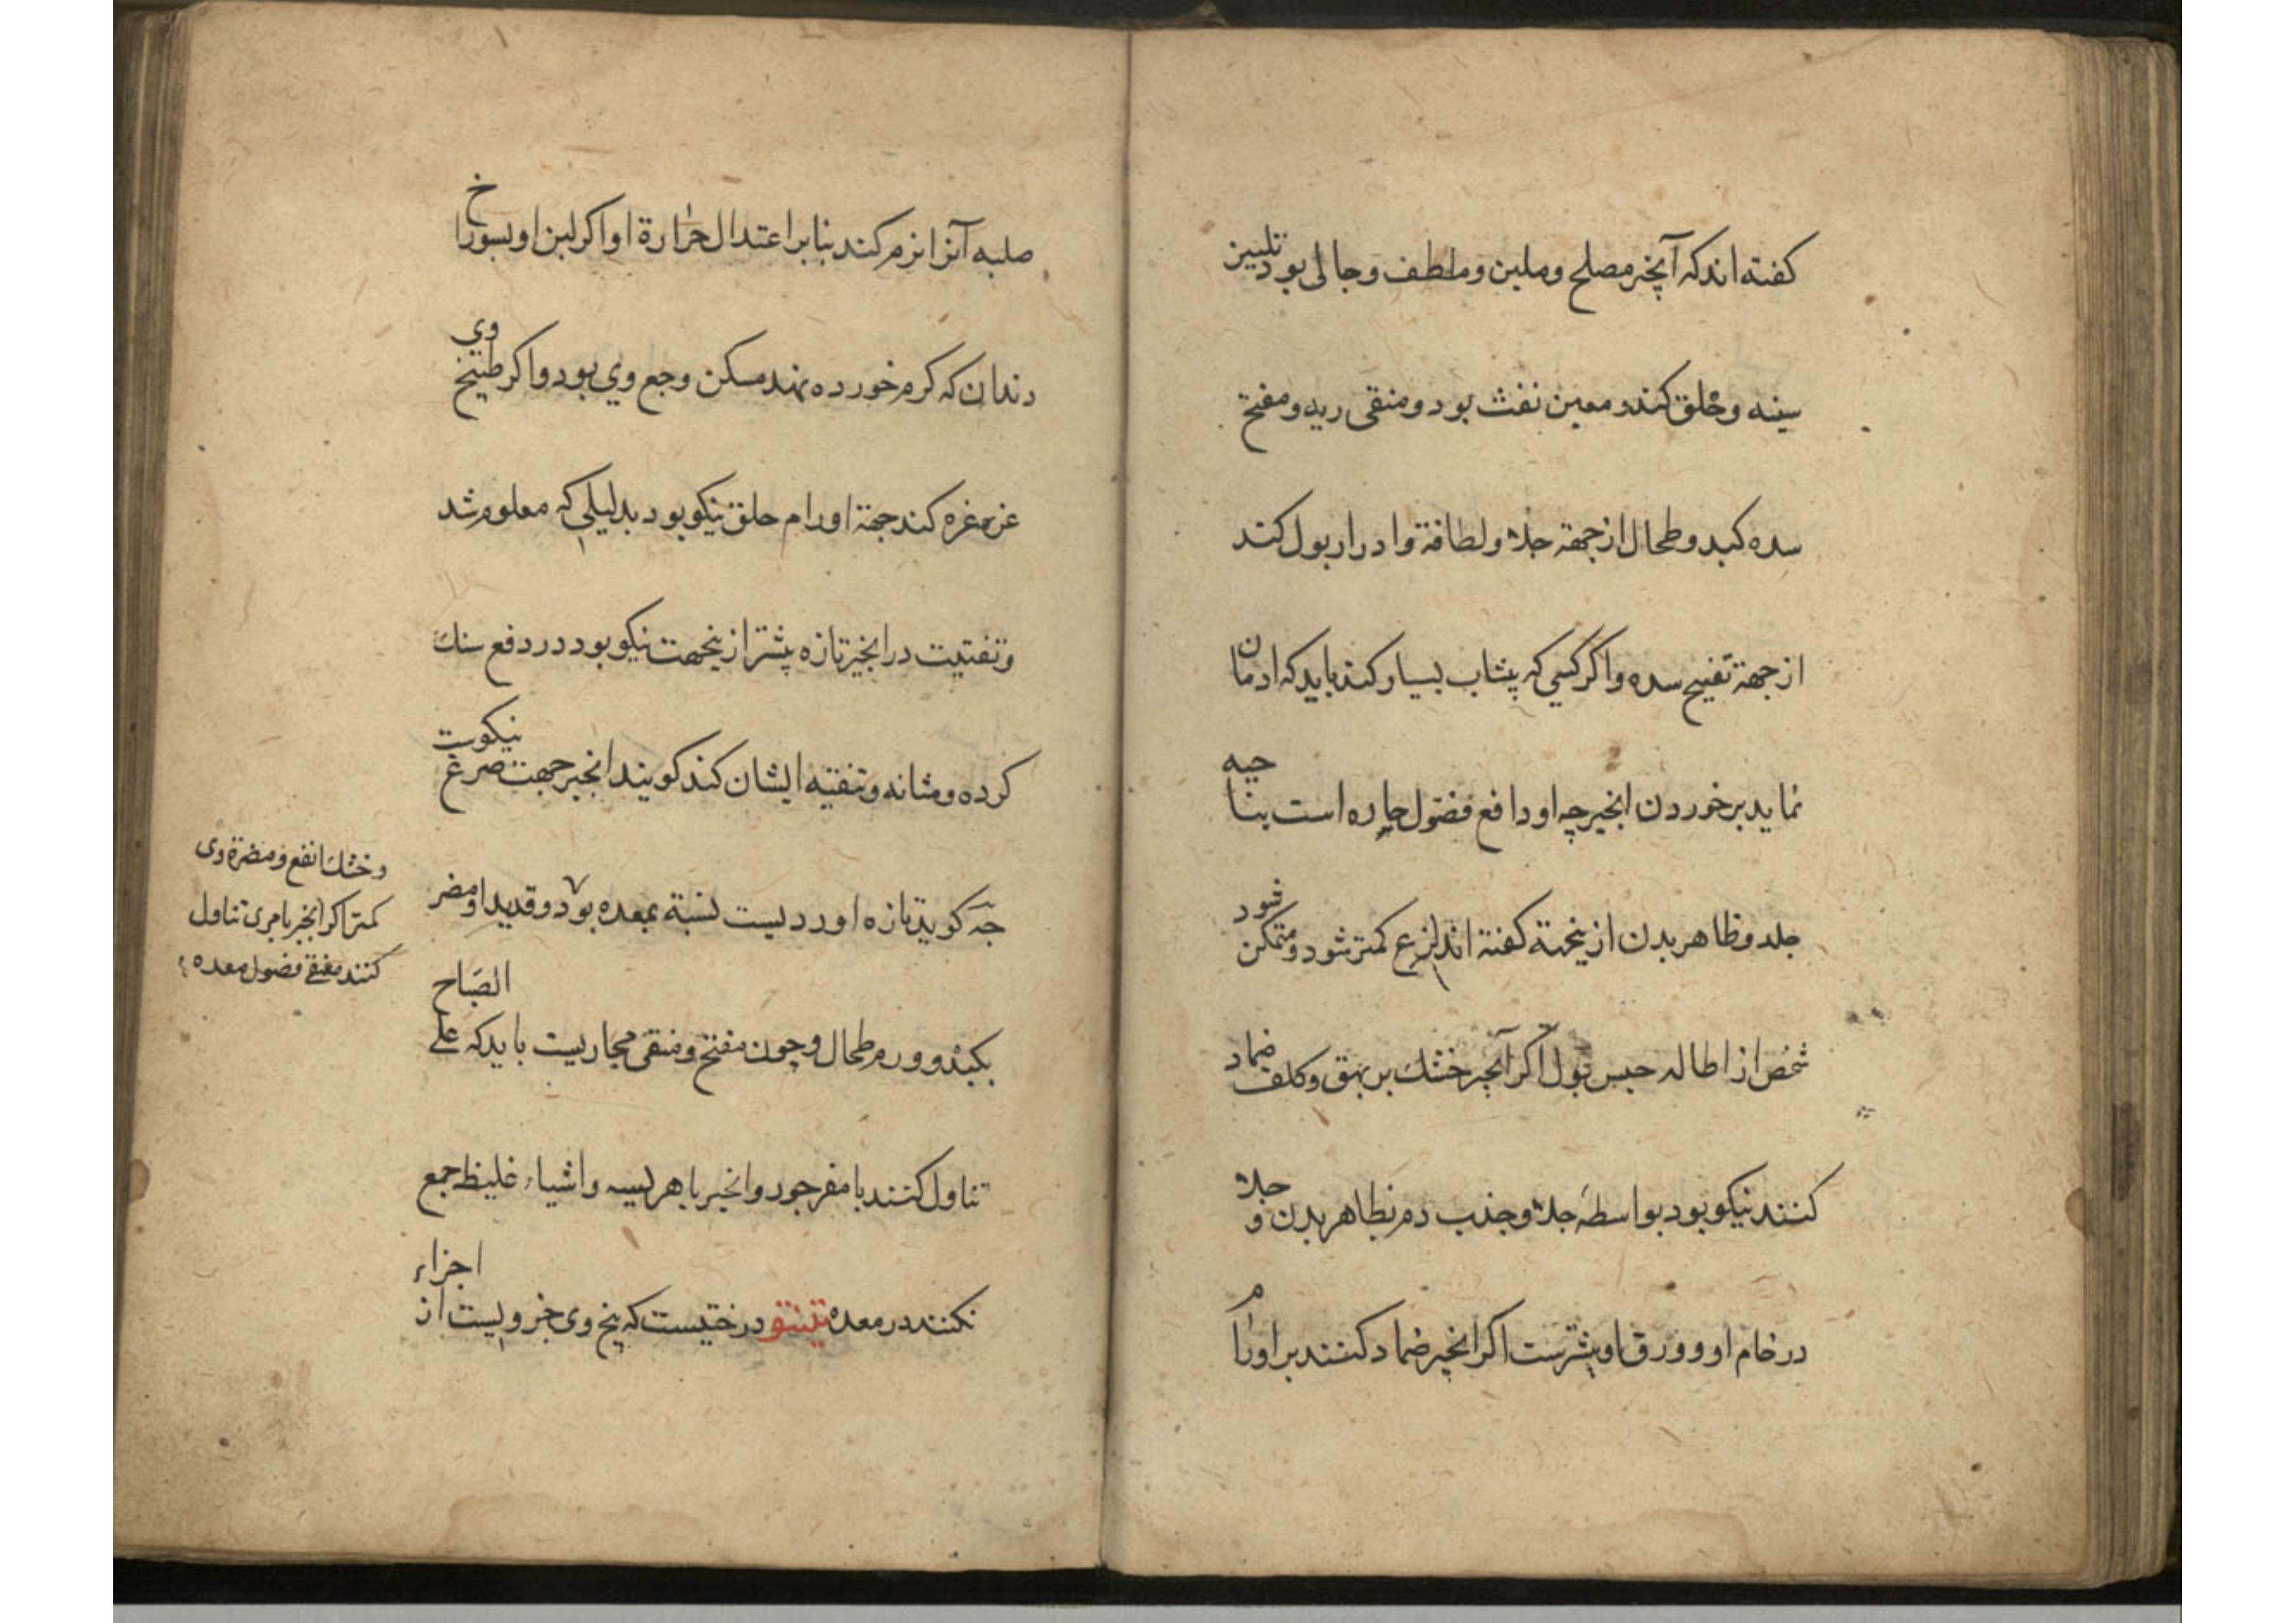 کفته اند که آنچیر مصلح و ملین و ملطف و جالی بود تلیین
سینه و حلق کند و معین نفث بود و منقی ریه و مفتح
سده کبد و طحال از جهة جلاء و لطافة و ادرار بول کند
از جهة تفتیح سده و اکر کسی که پیشاب بسیار کند باید که ادمان
نماید بر خوردن انجیر چه او دافع فضول حاره است بنا حیه
جلد و ظاهر بدن از ینجهة کفته اند لزع کمتر شود و متمکن شود
شخص از اطاله حبس بول اکر آنجیر خشك بر بهق و کلف ضماد
کنند نیکو بود بواسطه جلاء و جذب دم بظاهر بدن و جلاء
در خام او و ورق او بیشترست اکر انجیر ضماد کنند بر اورام
صلبه آنرا نرم کند بنابر اعتدال حرارة او اکر لبن او بسوراخ
دندان که کرم خورده نهند مسکن وجع وی بود و اکر طبیخ وی
غرغره کند جهة اورام حلق نیکو بود بدلیلی که معلوم شد
و تفتیت در انجیر تازه بیشتر ازینجهت نیکو بود در دفع سنك
کرده و مثانه و تنقیه ایشان کند کویند انجیر جهت صرع نیکوست
کویند تازه او ردیست نسبة بمعده بود و قدید او مضر
بکبد و ورم طحال و چون مفتح و منقی مجاریست باید که علی الصباح
تناول کنند با مغز جوز و انجیر با هریسه و اشیاء غلیظ جمع
نکنند در معده تینتو درختیست که بیخ وی جزویست از اجزاء
و خشك انفع و مضرة وی
کمتر اکر انجیر با مری تناول
کنند منقی فضول معده